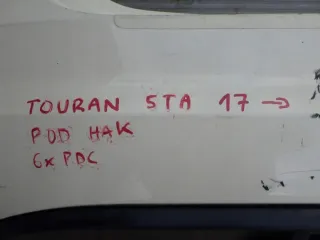 TOURAN 5TA 17 →
POD HAK
6xPDC